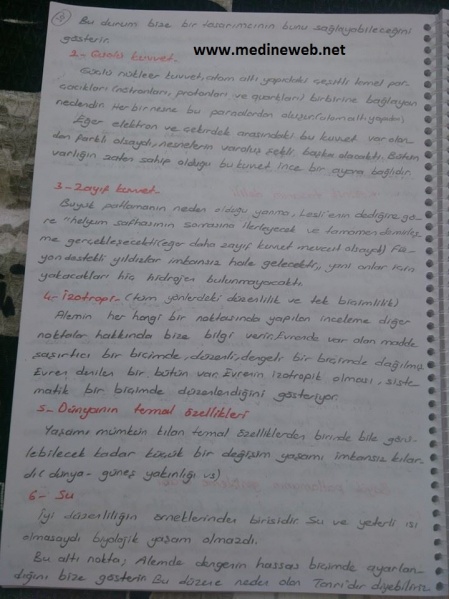 Bu durum bize bir tasarımcının bunu sağlayabileceğini
gösterir.
www.medineweb.net
2- Güçlü kuvvet.
Güçlü nükleer kuvvet, atom altı yapıdaki çeşitli temel par-
çacıkları (nötronları, protonları ve quarkları) birbirine bağlayan
nedendir. Her bir nesne bu parçalardan oluşur (atom altı yapıdır)
Eğer elektron ve çekirdek arasındaki bu kuvvet var olan-
dan farklı olsaydı, nesnelerin varoluş şekli başka olacaktı. Bütün
varlığın zaten sahip olduğu bu kuvvet ince bir ayara bağlıdır.
3- Zayıf kuvvet
Büyük patlamanın neden olduğu yanma, Leslie'nin dediğine gö-
re "helyum safhasının sonrasına ilerleyecek ve tamamen
me gerçekleşecekti (eğer daha zayıf kuvvet mevcut olsaydı) Füz-
yon destekli yıldızlar imkansız hale gelecekti,, yani onlar için
yakacakları hiç hidrojen bulunmayacaktı.
4- İzotropi- (tüm yönlerdeki düzenlilik ve tek biçimlilik)
Alemin her hangi bir noktasında yapılan inceleme diğer
noktalar hakkında bize bilgi verir. Evrende var olan madde
şaşırtıcı bir biçimde, düzenli, dengeli bir biçimde dağılmış
Evren denilen bir bütün var. Evrenin izotropik olması, siste-
matik bir biçimde düzenlendiğini gösteriyor.
5- Dünyanın termal özellikleri
Yaşamı mümkün kılan termal özelliklerden birinde bile görü-
lebilecek kadar küçük bir değişim yaşamı imkansız kılar-
dı (dünya- güneş yakınlığı vs)
6- Su
İyi düzenliliğin örneklerinden birisidir. Su ve yeterli ısı
olmasaydı biyolojik yaşam olmazdı.
Bu altı nokta; Alemde dengenin hassas biçimde ayarlan-
dığını bize gösterir. Bu düzene neden olan Tanrı'dır diyebiliriz